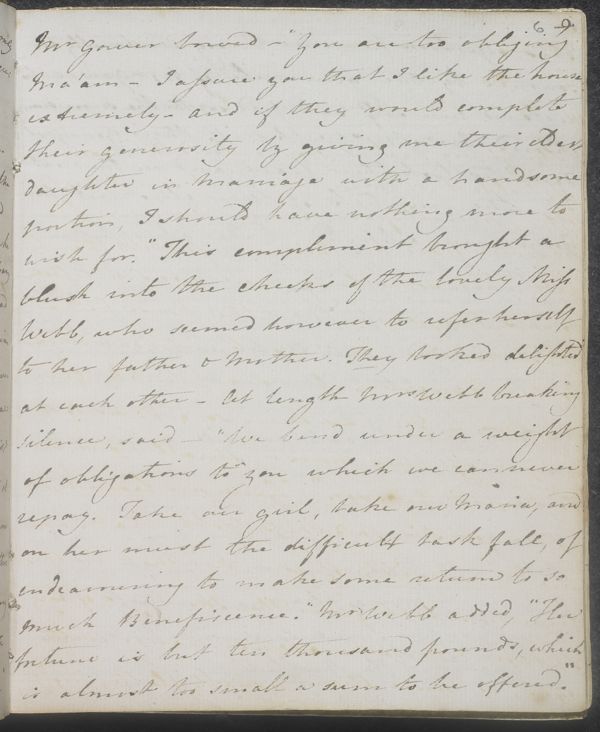 6. 9
Mr Gower bowed – "You are too obliging
Ma'am – I assure you that I like the house
extremely – and if they would complete
their generosity by giving me their elder
daughter in marriage with a handsome
portion, I should have nothing more to
wish for." This compliment brought a
blush into the cheeks of the lovely Miss
Webb, who seemed however to refer herself
to her father & Mother. They looked delighted
at each other – At length Mrs Webb breaking
silence, said – "We bend under a weight
of obligations to you which we can never
repay. Take our girl, take our Maria, and
on her must the difficult task fall, of
endeavouring to make some return to so
much Benefiscence." Mr Webb added, "Her
fortune is but ten thousand pounds, which
is almost too small a sum to be offered."